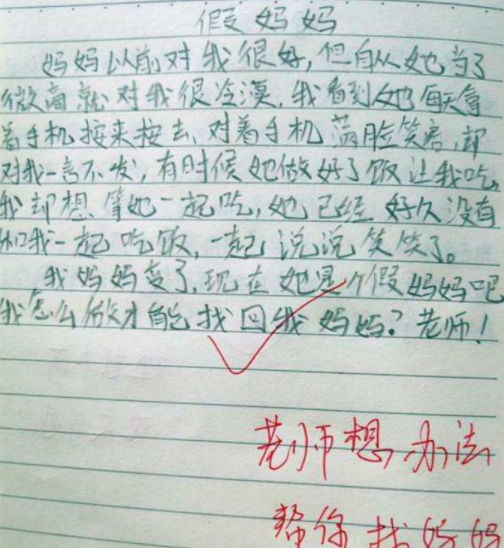 假妈妈
妈妈以前对我很好，但自从她当了
微商就对我很冷漠，我看到她每天拿
着手机按来按去，对着手机满脸笑容，却
对我一言不发，有时候她做好了饭让我吃
我却想等她一起吃，她已经好久没有
和我一起吃饭，一起说说笑笑了。
我妈妈变了，现在她是个假妈妈吧
我怎么做才能找回我妈妈？老师！
老师想办法
帮你找妈妈